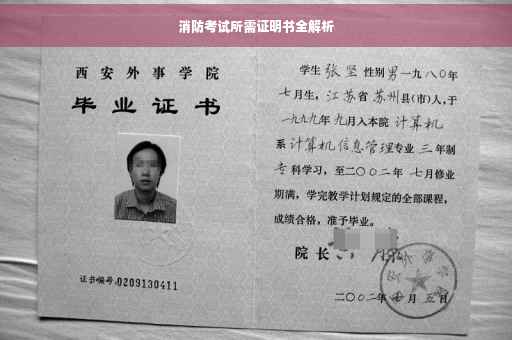 消防考试所需证明书全解析
西安外事学院
毕业证书
证书编号:0209130411
学生 张坚 性别 男 一九八〇年
七月生，江苏省 苏州 县(市)人,于
一九九九年 九月入本院 计算机
系 计算机信息管理 专业 三 年制
专 科学习，至二〇〇二年 七月修业
期满，学完教学计划规定的全部课程，
成绩合格，准予毕业。
院长
二〇〇二年 月 五日